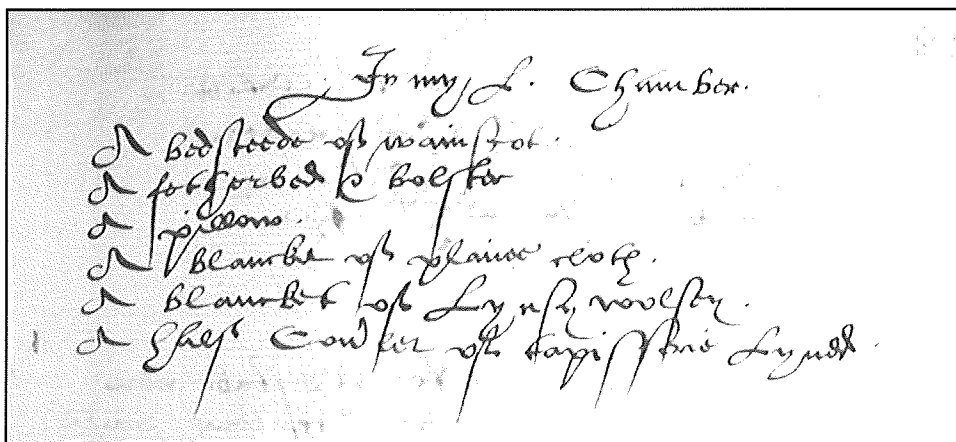 In my L. Chamber.
A bedsteede off wainscot.
A fetherbed & bolster
A pillow.
A blancket off plaine cloth.
A blancket off Lynsy wolsey.
A half Coverlet off tapisserie Lyned.